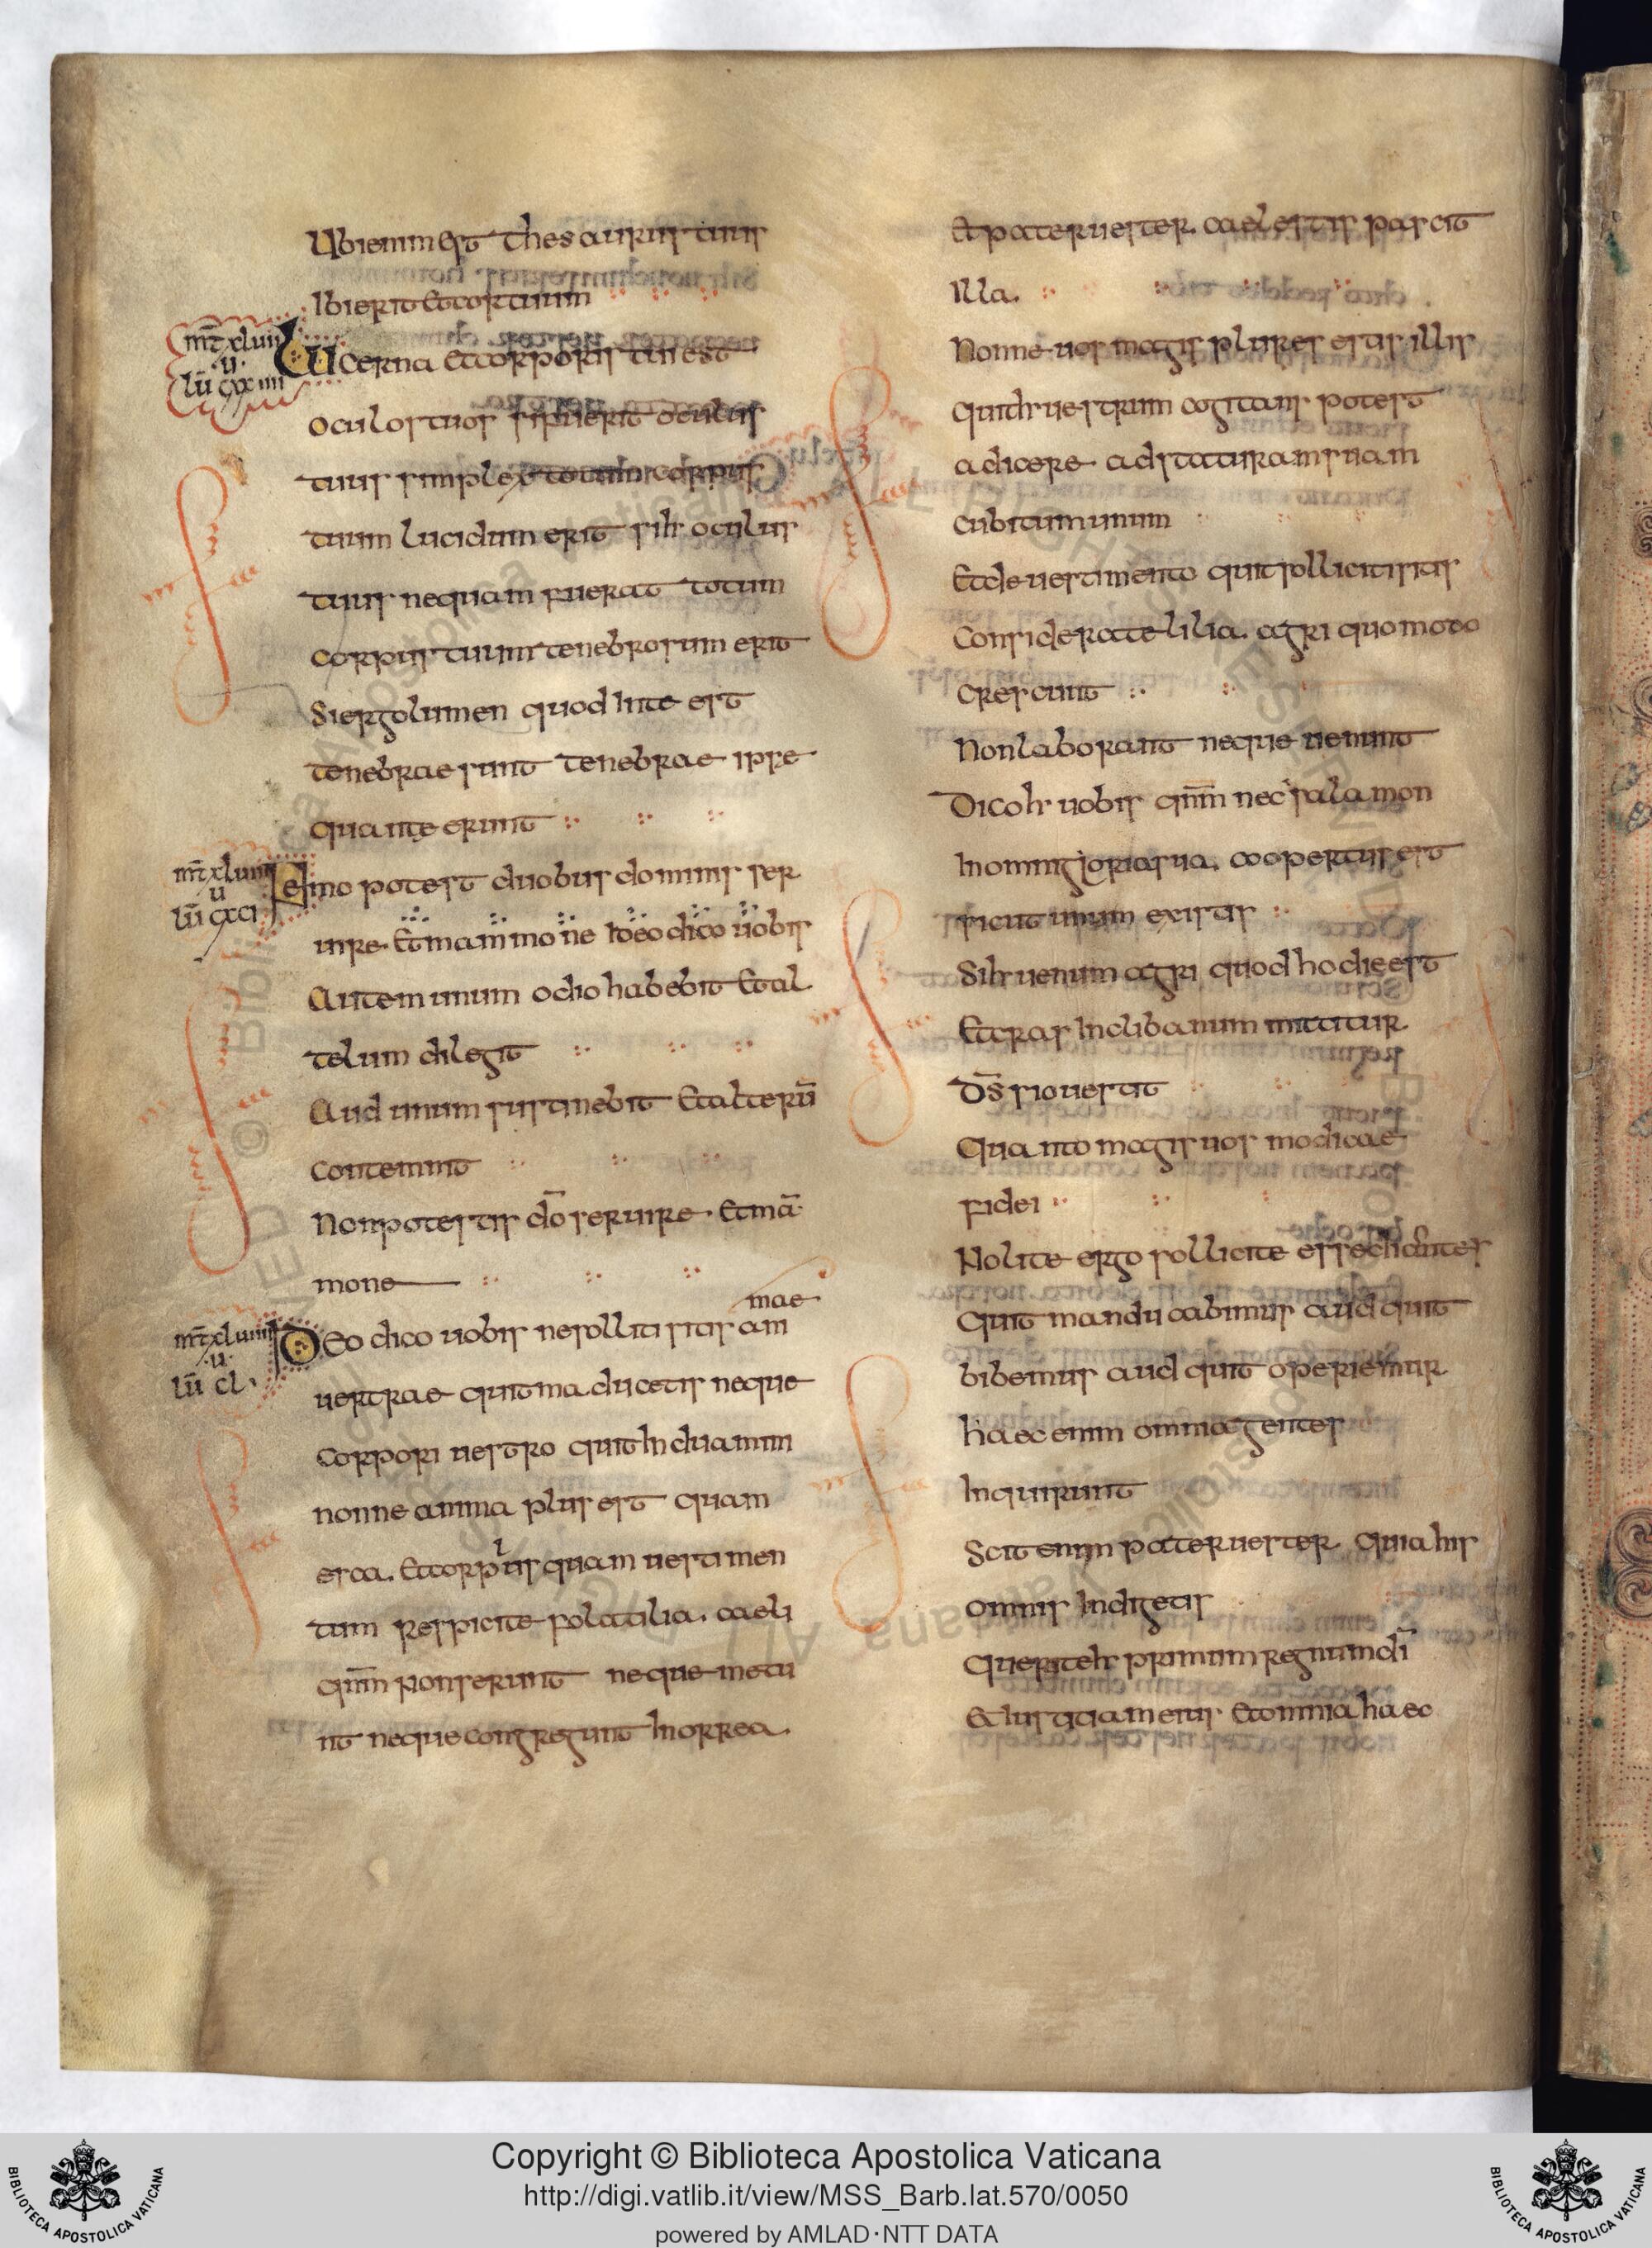 Ubi enim est thesaurus tuus
Ibi erit et cor tuum
mt̄ xluii
u
lū cxxiiii
Lucerna et corporis tui est
oculos tuos si fuerit oculus
tuus simplex totum corpus
tuum lucidum erit si h oculus
tuus nequam fuerat totum
corpus tuum tenebrosum erit
Si ergo lumen quod In te est
tenebrae sunt tenebrae ipse
quante erunt
mt̄ xluiii
u
lū cxci
Nemo potest duobus dominis ser
uire. Et mammone Ideo dico uobis
Autem unum odio habebit Et al
telum dilegit
Aud unum sustinebit Et alterū
contemnit
Non potestis dō seruire. Et mā
mone
mae
mt̄ xluiiii
u
lū cl.
IDeo dico uobis ne solliti sitis am
uestrae quit maducetis neque
corpori uestro quit Induamin
nonne anima plus est quam
esca. Et corpus quam uestimen
tum Respicite folatilia. caeli
qnīm non serunt neque metu
nt neque congregunt In orrea.
Et pater uester. caelestis pascit
Illa.
Nonne uos magis plures estis illis
Quid h uestrum cogitans potest
adicere ad staturam suam
cubitum unum
Et de uestimento quit solliciti sitis
Considerate lilia. agri quomodo
crescunt
Non laborant neque nenunt
Dico h uobis qnīm nec salamon
In omni gloria sua. coopertus est
sicut unum ex istis
Si h uenum agri quod hodie est
Et cras In clibanum mittitur
Ds̄ sio uestit
Quanto magis uos modicae
fidei
Nolite ergo sollicite esse dicentes
Quit manducabimus aud quit
bibemus aud quit operiemur
haec enim omnia gentes
Inquirunt
Scit enim pater uester Quia his
omnis Indigetis
Querite h primum regnum dī
Et Iustitiam eius. Et omnia haec
Copyright © Biblioteca Apostolica Vaticana
http://digi.vatlib.it/view/MSS_Barb.lat.570/0050
powered by AMLAD·NTT DATA
BIBLIOTECA APOSTOLICA VATICANA
BIBLIOTECA APOSTOLICA VATICANA